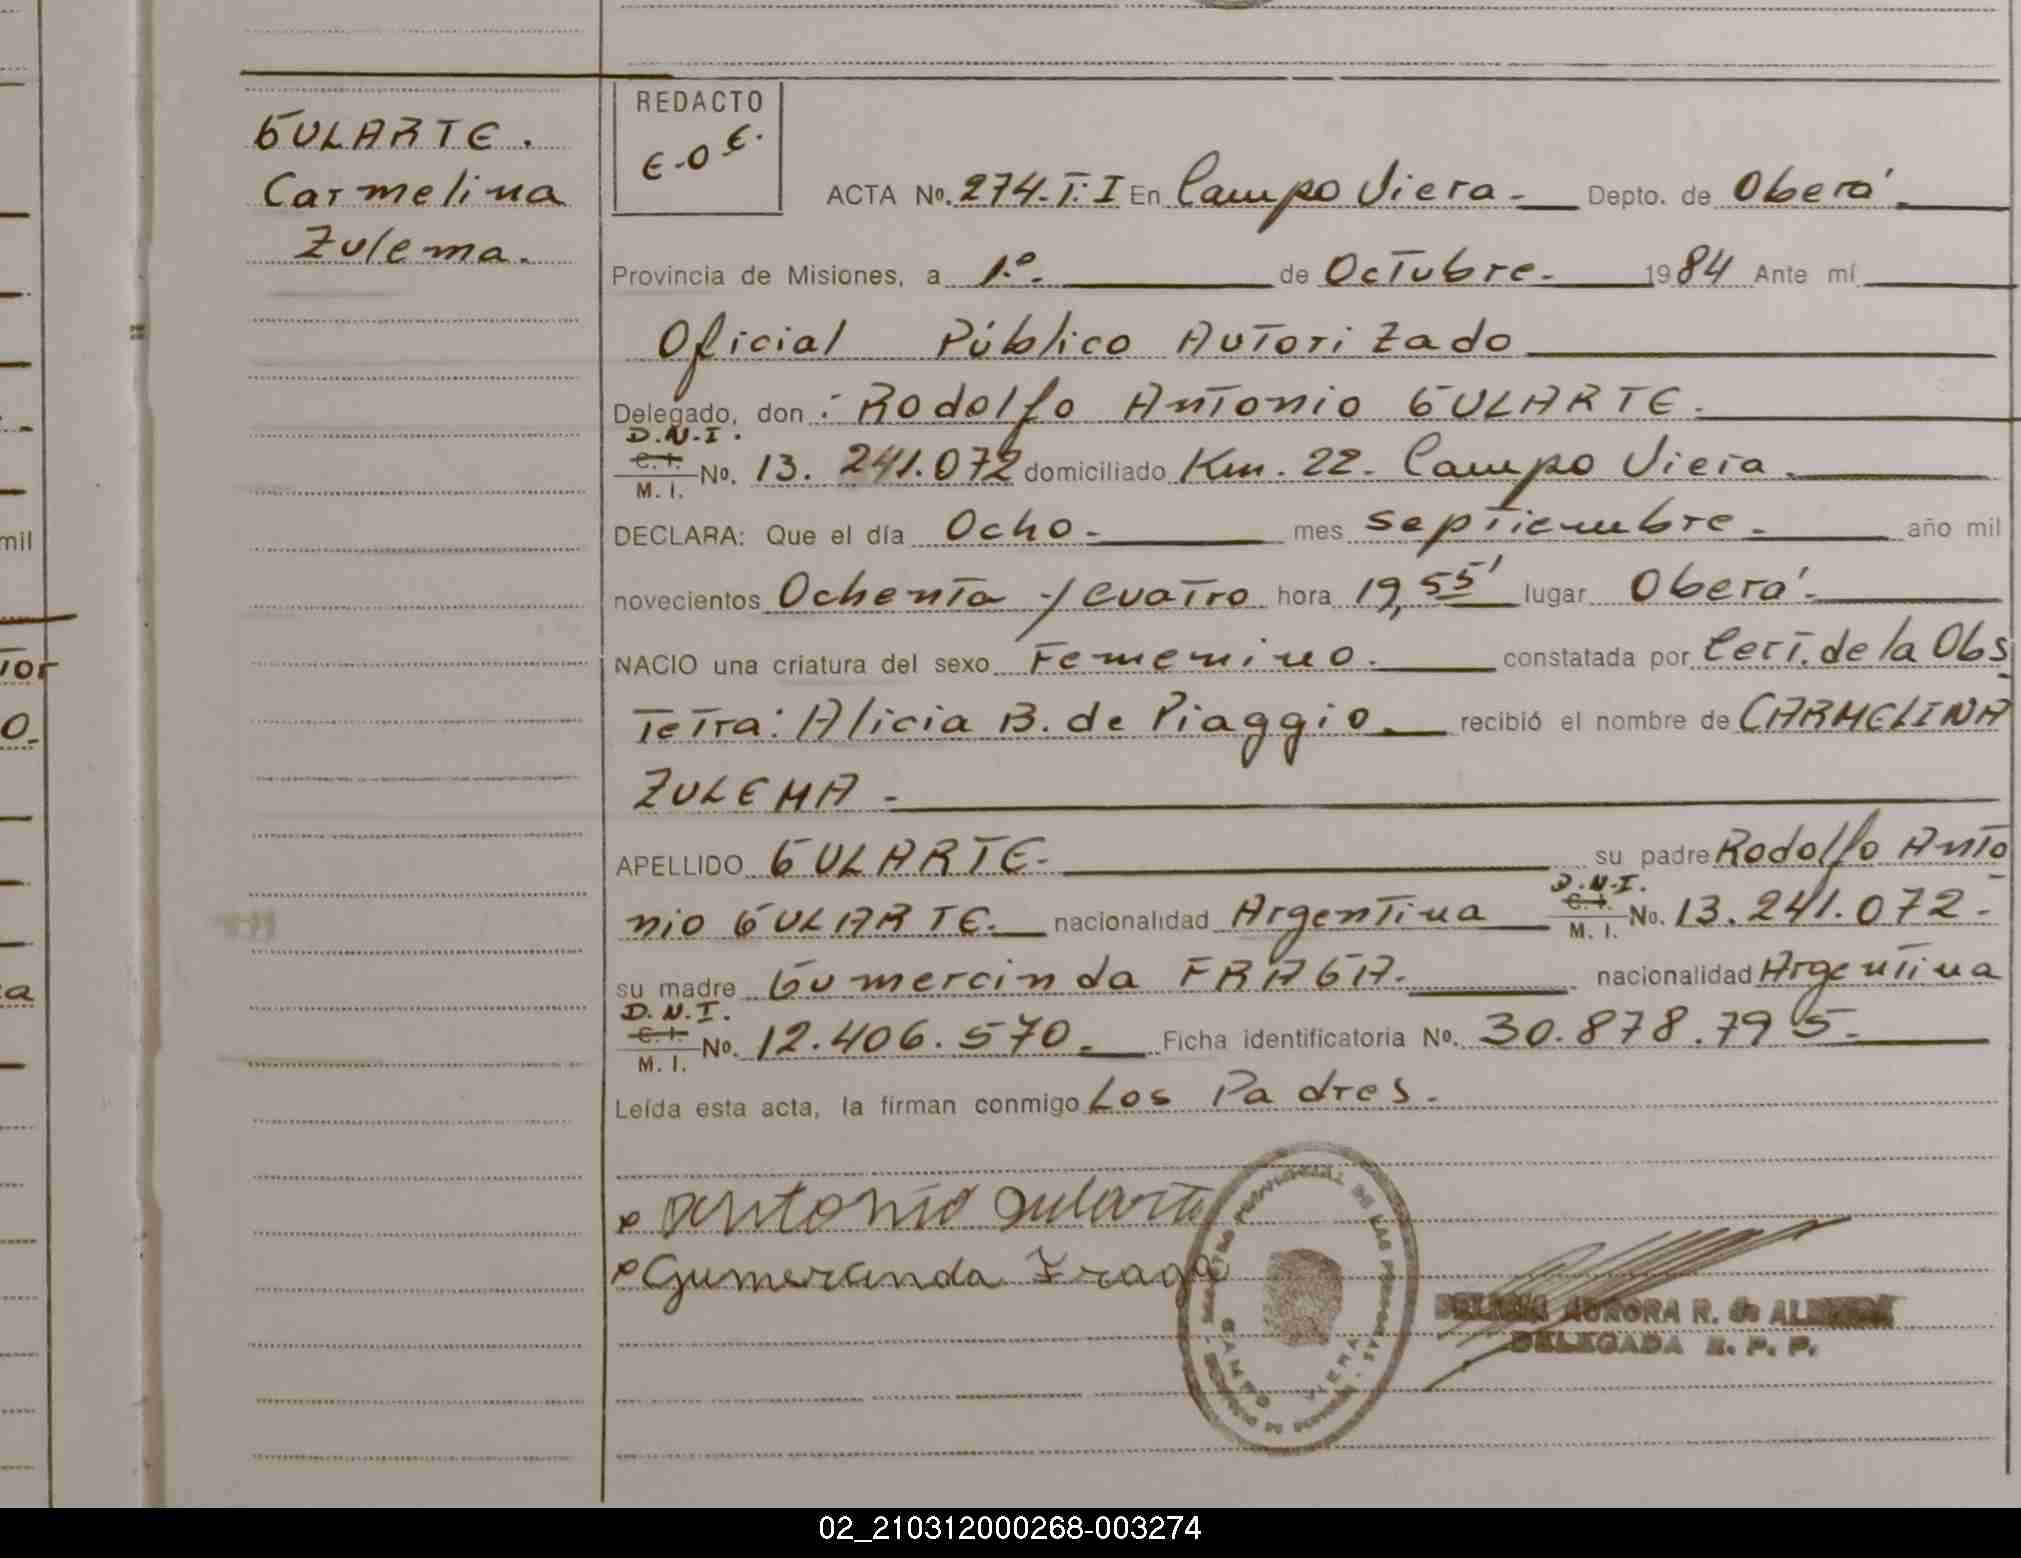 mil
ior
O.
a
GULARTE.
Carmelina
Zulema.
REDACTO
E.O.E.
ACTA No. 274.T:I En Campo Viera - Depto. de Oberá -
Provincia de Misiones, a 1.º - de Octubre - 1984 Ante mí
Oficial Público Autorizado
Delegado, don : Rodolfo Antonio GULARTE.
D.N.I.
C. I.
M. I. No. 13. 241.072 domiciliado Km. 22. Campo Viera.
DECLARA: Que el día Ocho - mes septiembre - año mil
novecientos Ochenta y Cuatro hora 19,55' lugar Oberá -
NACIO una criatura del sexo Femenino. constatada por Cert. de la Obs
tetra: Alicia B. de Piaggio. recibió el nombre de CARMELINA
ZULEMA -
APELLIDO GULARTE - su padre Rodolfo Anto
nio GULARTE. nacionalidad Argentina D.N.I. C. I. M. I. No. 13.241.072 -
su madre Gumercinda FRAGA. nacionalidad Argentina
D.N.I.
C. I.
M. I. No. 12.406.570. Ficha identificatoria No. 30.878.795 -
Leída esta acta, la firman conmigo Los Padres.
Antonio Gularte
Gumercinda Fraga
PROVINCIAL DE LAS PERSONAS
CAMPO VIERA
AURORA R. de
DELEGADA R. P. P.
02_210312000268-003274